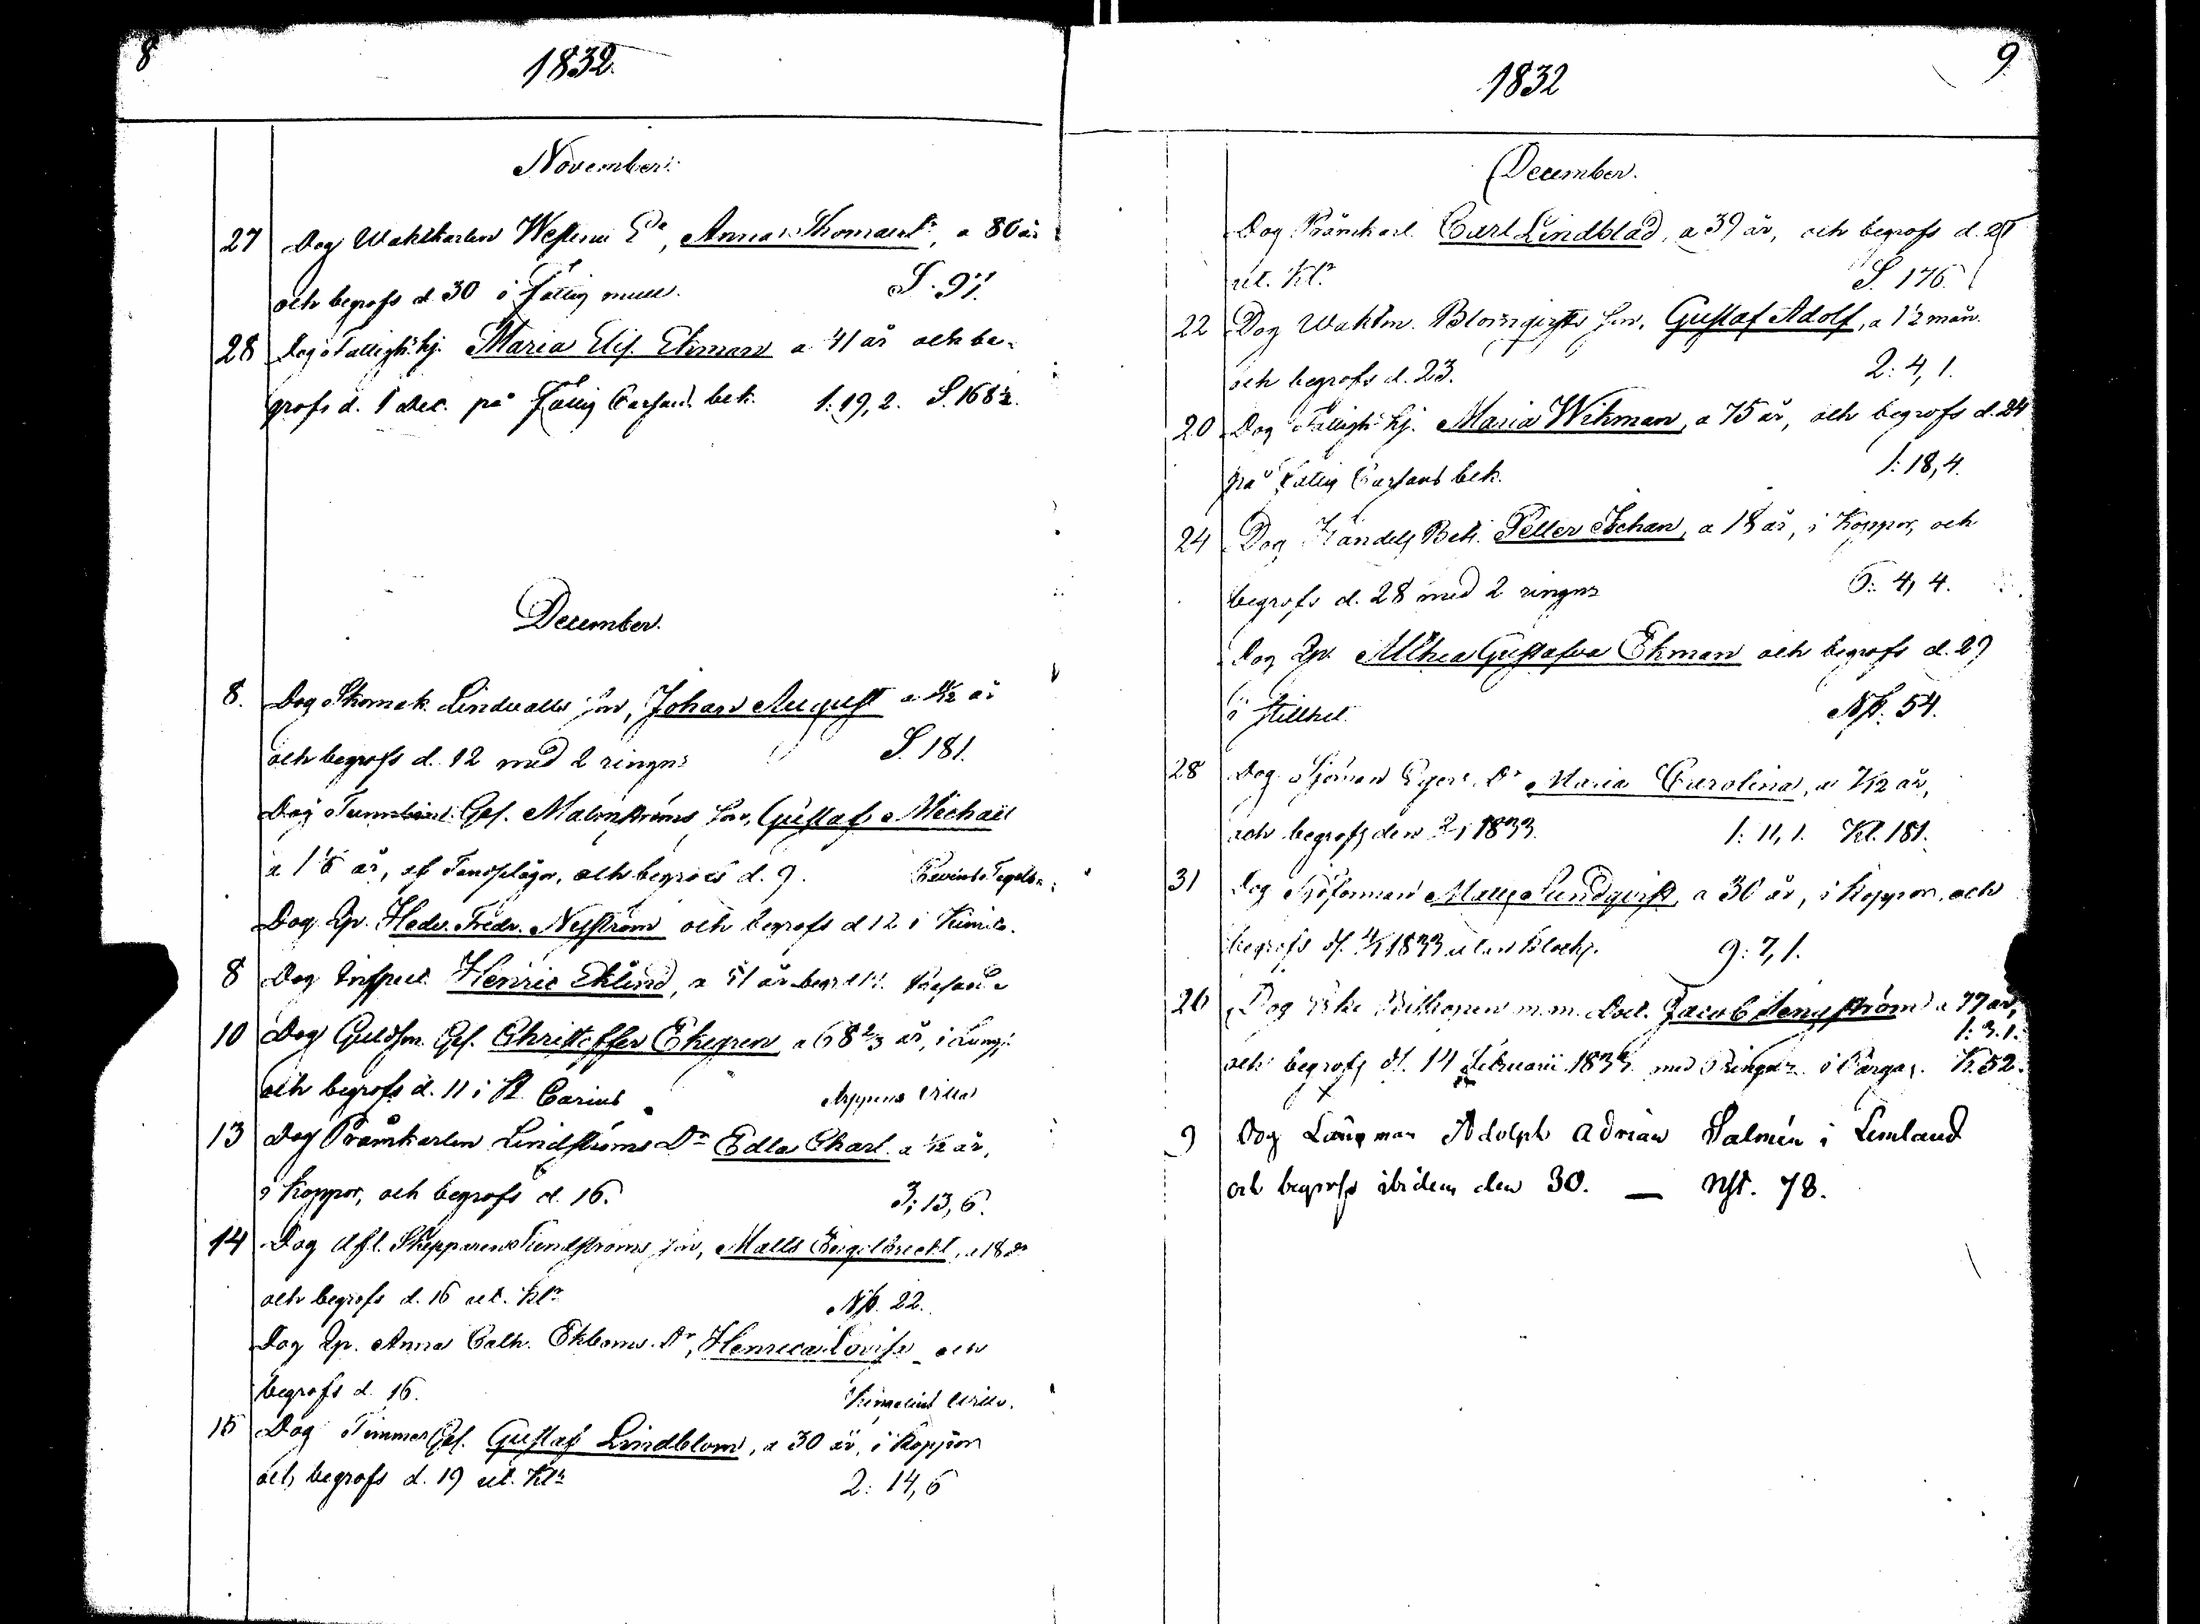 8
1832.
November.
27 Dog Waktkarlen Westens Ea, Anna Thomasdr, a 80 år
och begrofs d. 30 i fattig mull. S. 91.
28 Dog Fattigh. hj. Maria Elis. Ekman a 41 år och be-
grofs d. 1 Dec. på fattig Cassans bek. 1: 19, 2. S. 168½.
December.
8. Dog Skomak. Lindwalls son, Johan August a ½ år
och begrofs d. 12 med 2 ringnr S. 181.
Dog Tunnbind. Ges. Malmströms son, Gustaf Michael
a 1 år, af Tandplågor, och begrofs d. 9.
Dog Qp. Hedv. Fredr. Nyström och begrofs d 12 i Kimito.
8 Dog Inspect. Henric Eklund, a 51 år
10 Dog Guldsm. Ges. Christoffer Ekegren a 68 2/3 år, i Lungs.
och begrofs d. 11 i St. Carins Arppens Villa
13 Dog Pråmkarlen Lindströms Dr Edla Charl. a ½ år,
i Koppor, och begrofs d. 16. 3: 13, 6.
14 Dog Afl. Skepparen Sundströms son, Matts Engelbrecht, a 18 år
och begrofs d. 16 ut. Klr Nst. 22.
Dog Qp. Anna Cath. Ekboms Dr, Henrica Lovisa och
begrofs d. 16.
15 Dog Timmer Ges. Gustaf Lindblom, a 30 år, i Koppor
och begrofs d. 19 ut. Klr 2: 14, 6
9
1832
December.
Dog Pråmkarl. Carl Lindblad, a 39 år, och begrofs d.
ut. Klr S. 176.
22 Dog Waktm. Blomqvists son, Gustaf Adolf, a 1½ mån.
och begrofs d. 23. 2: 4, 1.
20 Dog Fattigh. hj. Maria Wikman, a 75 år, och begrofs d. 24
på Fattig Cassans bek. 1: 18, 4.
24 Dog Handels Betj. Petter Ischan, a 18 år, i Koppor, och
begrofs d. 28 med 2 ringnr 6: 4, 4.
Dog Qp. Althea Gustafva Ekman och begrofs d. 29
i stillhet. Nst. 54.
28 Dog Sjöman Dr Maria Carolina, a 7/12 år,
och begrofs den 2/1 1833. 1: 11, 1. Kl. 181.
31 Dog Matts Sundqvist, a 30 år, i Koppor, och
begrofs d. 4/1 1833 utan klock. 9: 7, 1.
26 Dog Biskopen m.m. Doct. Jacob Tengström a 77 år,
1: 3. 1.
och begrofs d. 14 Februarii 1833 med Ringnr i Pargas. K. 52.
9 Dog Lagman Adolph Adrian Salmén i Lemland
och begrofs ibidem den 30. — Nst. 78.